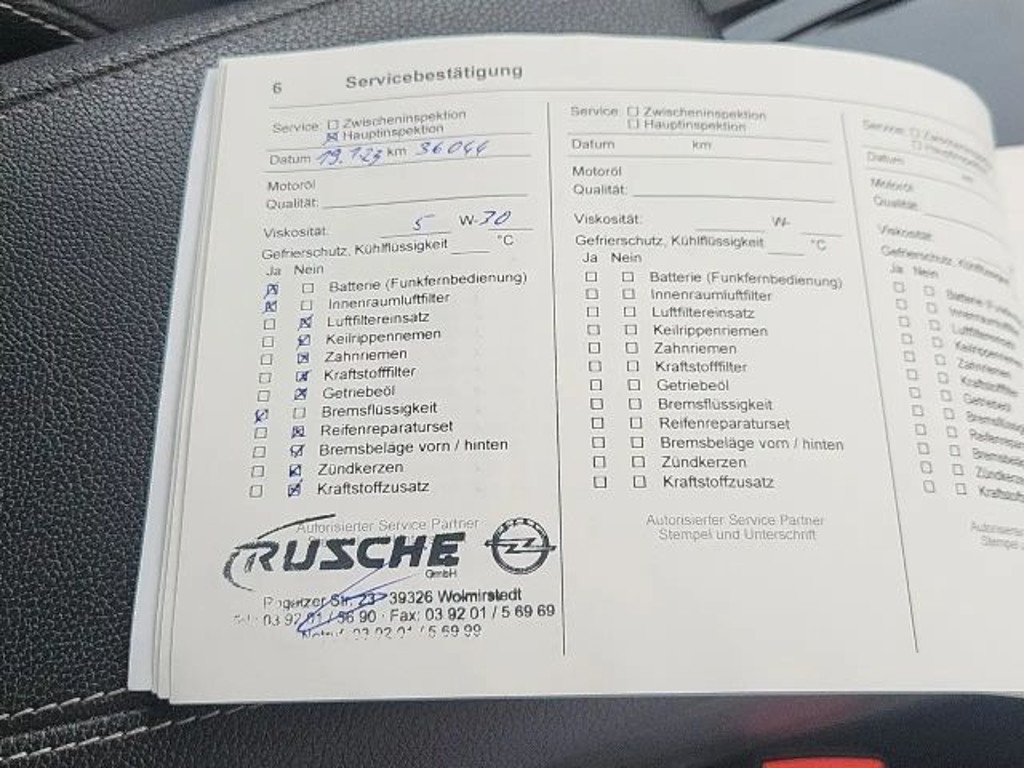 6 Servicebestätigung
Service: Zwischeninspektion
Hauptinspektion
Datum 19.1.23 km 36044
Motoröl
Qualität:
Viskosität: 5 W-30
Gefrierschutz, Kühlflüssigkeit °C
Ja Nein
Batterie (Funkfernbedienung)
Innenraumluftfilter
Luftfiltereinsatz
Keilrippenriemen
Zahnriemen
Kraftstofffilter
Getriebeöl
Bremsflüssigkeit
Reifenreparaturset
Bremsbeläge vorn / hinten
Zündkerzen
Kraftstoffzusatz
Autorisierter Service Partner
RUSCHE
GmbH
Str. 23 39326 Wolmirstedt
03 92 01 / 56 90 · Fax: 03 92 01 / 5 69 69
03 92 01 / 5 69 99
Service: Zwischeninspektion
Hauptinspektion
Datum km
Motoröl
Qualität:
Viskosität: W-
Gefrierschutz, Kühlflüssigkeit °C
Ja Nein
Batterie (Funkfernbedienung)
Innenraumluftfilter
Luftfiltereinsatz
Keilrippenriemen
Zahnriemen
Kraftstofffilter
Getriebeöl
Bremsflüssigkeit
Reifenreparaturset
Bremsbeläge vorn / hinten
Zündkerzen
Kraftstoffzusatz
Autorisierter Service Partner
Stempel und Unterschrift
Service: Zwischeninspektion
Hauptinspektion
Datum km
Motoröl
Qualität:
Viskosität:
Gefrierschutz, Kühlflüssigkeit
Ja Nein
Batterie
Innenraumluftfilter
Keilrippenriemen
Zahnriemen
Kraftstofffilter
Getriebeöl